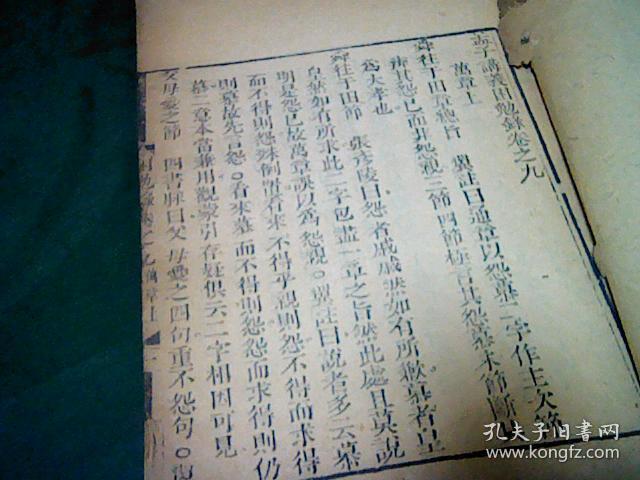 孟子講義困勉錄卷之九
萬章上
舜往于田章總旨 翼註曰通章以怨慕二字作主次節
辨其怨已而非怨親三節四節極言其怨慕末節斷其
為大孝也
舜往于田節 張彥陵曰怨者戚戚然如有所歉慕者皇
皇然如有所求此二字已盡一章之旨然此處且莫說
明是怨已故萬章誤以為怨親○翼註曰說者多云慕
而不得則怨殊倒置看來不得乎親則怨不得而求得
則慕故先言怨○看來慕而不得則怨怨而求得則仍
慕二章本當兼用觀蒙引存疑俱云二字相因可見
父母愛之節 四書脈曰父母愛之四句重不怨句○
困勉錄卷之九萬章上
孔夫子旧书网
www.kongfz.com